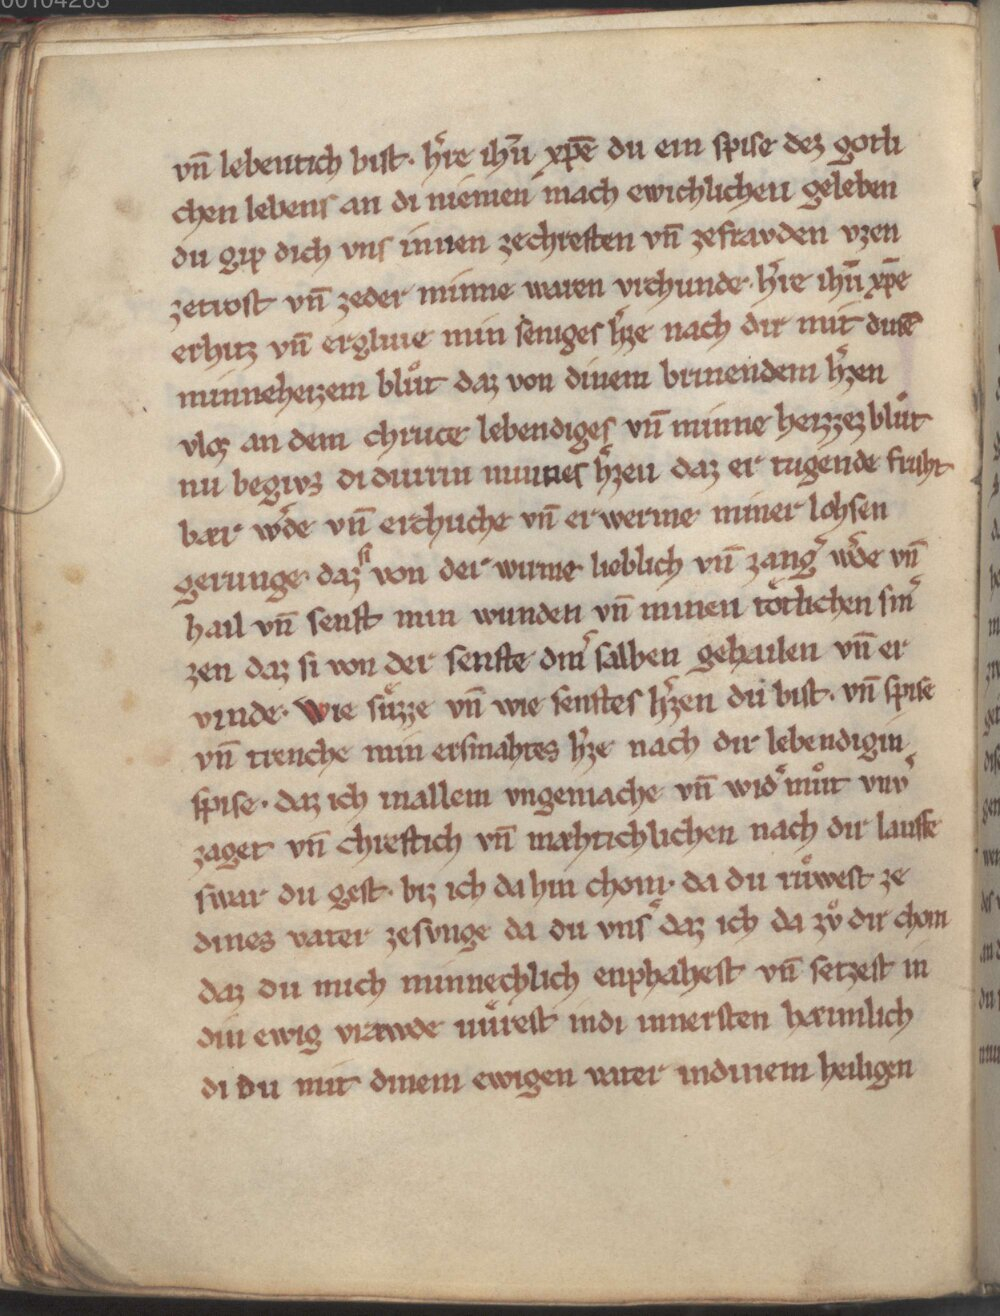 00104263
vn̄ lebentich bist · h̓re ihū xp̄e du ein spise dez gotli
chen lebens an di niemen mach ewichlichen geleben
du gip dich vns innen zechreften vn̄ zefravden vzen
zetrost vn̄ zeder minne waren vrchunde · h̓re ihū xp̄e
erhitz vn̄ erglvie min seniges h̓ze nach dir mit dinē
minneheizem blůt daz von dinem brinendem h̓zen
vloz an dem chruce lebendiges vn̄ minne heizzez blůt
nu begivz di durrin mines h̓zen daz er tugende fruht
bær w̓de vn̄ erchuche vn̄ erwerme miner
gerunge · daz si von der wirme lieblich vn̄ zang̓ w̓de vn̄
hail vn̄ senft min wunden vn̄ minen tötlichen sm̓
zen daz si von der senfte din̓ salben gehailen vn̄ er
vinde · Wie süzze vn̄ wie senftes h̓zen du bist · vn̄ spise
vn̄ trenche min ersmahtes h̓ze nach dir lebendigin
spise · daz ich inallem vngemache vn̄ wid̓ můt vnv̓
zaget vn̄ chreftich vn̄ mæhtichlichen nach dir lauffe
swar du gest · biz ich da hin chom · da du růwest ze
dines vater zesvnge da du vns̓ daz ich da zů dir chom
daz du mich minnechlich enphahest vn̄ setzest in
din ewig vrawde vürest indi innersten hæimlich
di du mit dinem ewigen vater indinem heiligen